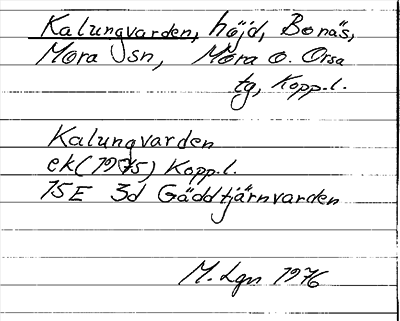 Kalungvarden, höjd, Bonäs,
Mora sn, Mora o. Orsa
tg, Kopp.l.
Kalungvarden
ek(1975) Kopp.l.
15E 3d Gäddtjärnvarden
M. Lgn 1976